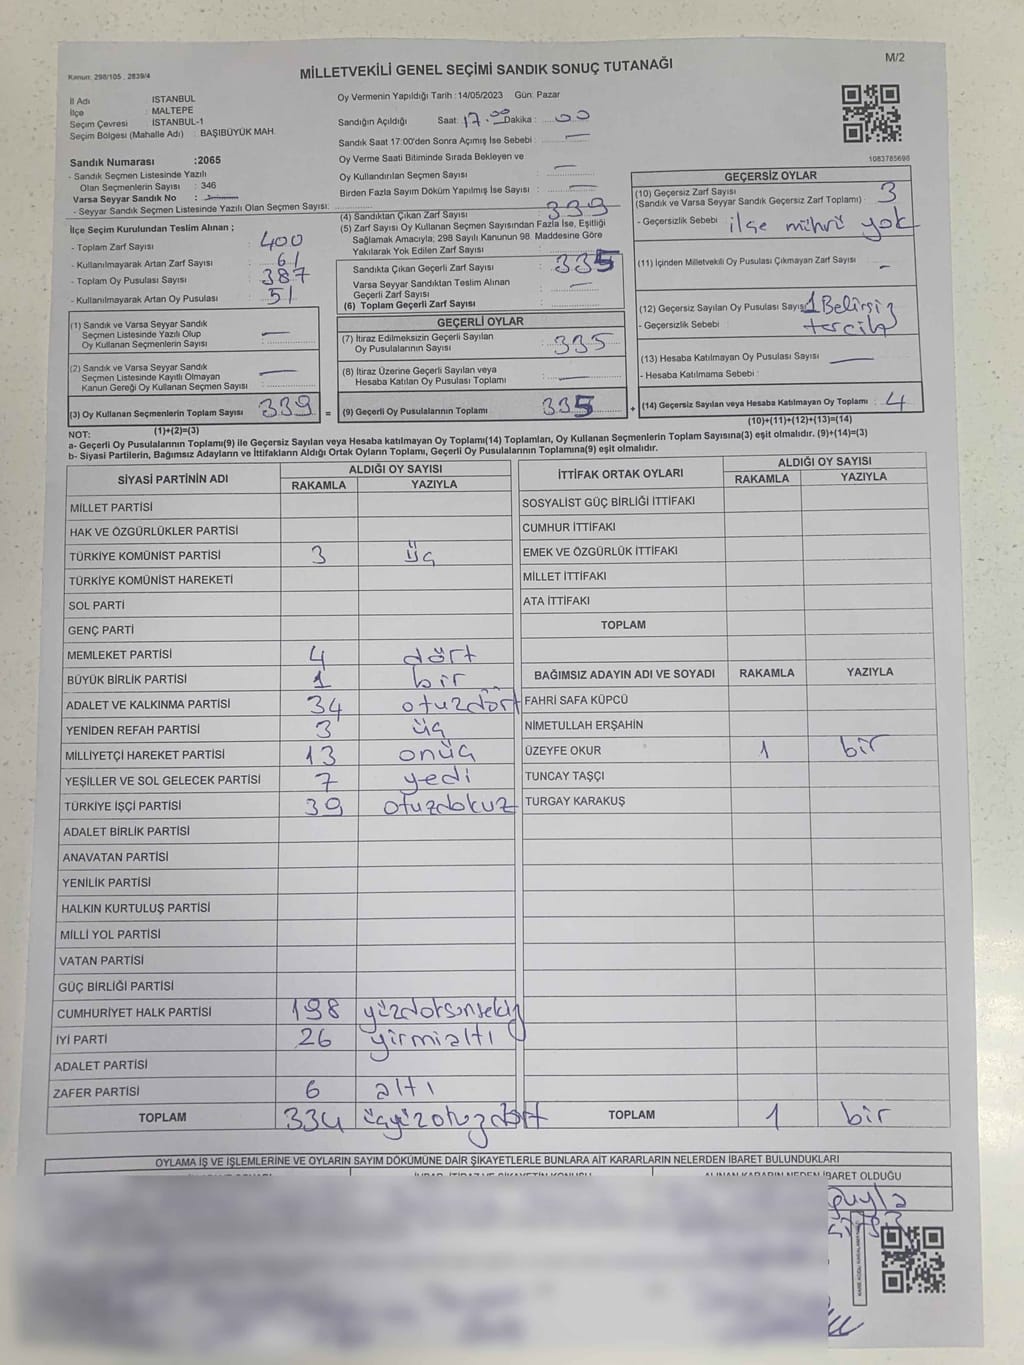 Kanun: 298/105 , 2839/4
MİLLETVEKİLİ GENEL SEÇİMİ SANDIK SONUÇ TUTANAĞI
M/2
İl Adı : İSTANBUL
İlçe : MALTEPE
Seçim Çevresi : İSTANBUL-1
Seçim Bölgesi (Mahalle Adı) : BAŞIBÜYÜK MAH.
Oy Vermenin Yapıldığı Tarih :14/05/2023 Gün: Pazar
Sandığın Açıldığı Saat: 17.00 Dakika : 00
Sandık Saat 17:00'den Sonra Açımış İse Sebebi : —
Oy Verme Saati Bitiminde Sırada Bekleyen ve
Oy Kullandırılan Seçmen Sayısı : —
Birden Fazla Sayım Döküm Yapılmış İse Sayısı : —
1083785698
Sandık Numarası :2065
- Sandık Seçmen Listesinde Yazılı
Olan Seçmenlerin Sayısı : 346
Varsa Seyyar Sandık No : —
- Seyyar Sandık Seçmen Listesinde Yazılı Olan Seçmen Sayısı:
İlçe Seçim Kurulundan Teslim Alınan ;
- Toplam Zarf Sayısı : 400
- Kullanılmayarak Artan Zarf Sayısı : 61
- Toplam Oy Pusulası Sayısı : 387
- Kullanılmayarak Artan Oy Pusulası : 51
(1) Sandık ve Varsa Seyyar Sandık
Seçmen Listesinde Yazılı Olup
Oy Kullanan Seçmenlerin Sayısı : —
(2) Sandık ve Varsa Seyyar Sandık
Seçmen Listesinde Kayıtlı Olmayan
Kanun Gereği Oy Kullanan Seçmen Sayısı : —
(3) Oy Kullanan Seçmenlerin Toplam Sayısı : 339 =
(1)+(2)=(3)
(4) Sandıktan Çıkan Zarf Sayısı : 339
(5) Zarf Sayısı Oy Kullanan Seçmen Sayısından Fazla İse, Eşitliği
Sağlamak Amacıyla; 298 Sayılı Kanunun 98. Maddesine Göre
Yakılarak Yok Edilen Zarf Sayısı
Sandıkta Çıkan Geçerli Zarf Sayısı : 335
Varsa Seyyar Sandıktan Teslim Alınan
Geçerli Zarf Sayısı : —
(6) Toplam Geçerli Zarf Sayısı :
GEÇERLİ OYLAR
(7) İtiraz Edilmeksizin Geçerli Sayılan
Oy Pusulalarının Sayısı : 335
(8) İtiraz Üzerine Geçerli Sayılan veya
Hesaba Katılan Oy Pusulası Toplamı : —
(9) Geçerli Oy Pusulalarının Toplamı : 335 +
GEÇERSİZ OYLAR
(10) Geçersiz Zarf Sayısı
(Sandık ve Varsa Seyyar Sandık Geçersiz Zarf Toplamı) : 3
- Geçersizlik Sebebi : ilçe mührü yok
(11) İçinden Milletvekili Oy Pusulası Çıkmayan Zarf Sayısı : -
(12) Geçersiz Sayılan Oy Pusulası Sayısı : 1 Belirsiz
- Geçersizlik Sebebi : tercih
(13) Hesaba Katılmayan Oy Pusulası Sayısı : —
- Hesaba Katılmama Sebebi :
(14) Geçersiz Sayılan veya Hesaba Katılmayan Oy Toplamı : 4
(10)+(11)+(12)+(13)=(14)
NOT:
a- Geçerli Oy Pusulalarının Toplamı(9) ile Geçersiz Sayılan veya Hesaba katılmayan Oy Toplamı(14) Toplamları, Oy Kullanan Seçmenlerin Toplam Sayısına(3) eşit olmalıdır. (9)+(14)=(3)
b- Siyasi Partilerin, Bağımsız Adayların ve İttifakların Aldığı Ortak Oyların Toplamı, Geçerli Oy Pusulalarının Toplamına(9) eşit olmalıdır.
SİYASİ PARTİNİN ADI ALDIĞI OY SAYISI
RAKAMLA YAZIYLA
MİLLET PARTİSİ
HAK VE ÖZGÜRLÜKLER PARTİSİ
TÜRKİYE KOMÜNİST PARTİSİ 3 üç
TÜRKİYE KOMÜNİST HAREKETİ
SOL PARTİ
GENÇ PARTİ
MEMLEKET PARTİSİ 4 dört
BÜYÜK BİRLİK PARTİSİ 1 bir
ADALET VE KALKINMA PARTİSİ 34 otuzdört
YENİDEN REFAH PARTİSİ 3 üç
MİLLİYETÇİ HAREKET PARTİSİ 13 onüç
YEŞİLLER VE SOL GELECEK PARTİSİ 7 yedi
TÜRKİYE İŞÇİ PARTİSİ 39 otuzdokuz
ADALET BİRLİK PARTİSİ
ANAVATAN PARTİSİ
YENİLİK PARTİSİ
HALKIN KURTULUŞ PARTİSİ
MİLLİ YOL PARTİSİ
VATAN PARTİSİ
GÜÇ BİRLİĞİ PARTİSİ
CUMHURİYET HALK PARTİSİ 198
İYİ PARTİ 26 yirmialtı
ADALET PARTİSİ
ZAFER PARTİSİ 6 altı
TOPLAM 334 üçyüzotuzdört
İTTİFAK ORTAK OYLARI ALDIĞI OY SAYISI
RAKAMLA YAZIYLA
SOSYALİST GÜÇ BİRLİĞİ İTTİFAKI
CUMHUR İTTİFAKI
EMEK VE ÖZGÜRLÜK İTTİFAKI
MİLLET İTTİFAKI
ATA İTTİFAKI
TOPLAM
BAĞIMSIZ ADAYIN ADI VE SOYADI RAKAMLA YAZIYLA
FAHRİ SAFA KÜPCÜ
NİMETULLAH ERŞAHİN
ÜZEYFE OKUR 1 bir
TUNCAY TAŞÇI
TURGAY KARAKUŞ
TOPLAM 1 bir
OYLAMA İŞ VE İŞLEMLERİNE VE OYLARIN SAYIM DÖKÜMÜNE DAİR ŞİKAYETLERLE BUNLARA AİT KARARLARIN NELERDEN İBARET BULUNDUKLARI
ALINAN KARARIN NEDEN İBARET OLDUĞU